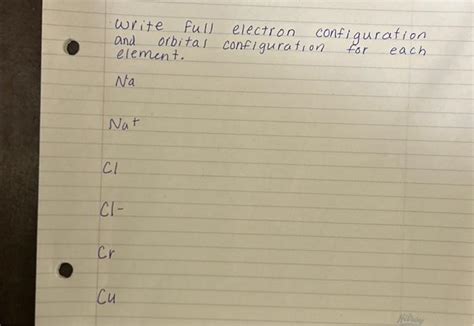 write full electron configuration
and orbital configuration for each
element.
Na
Na+
Cl
Cl-
Cr
Cu